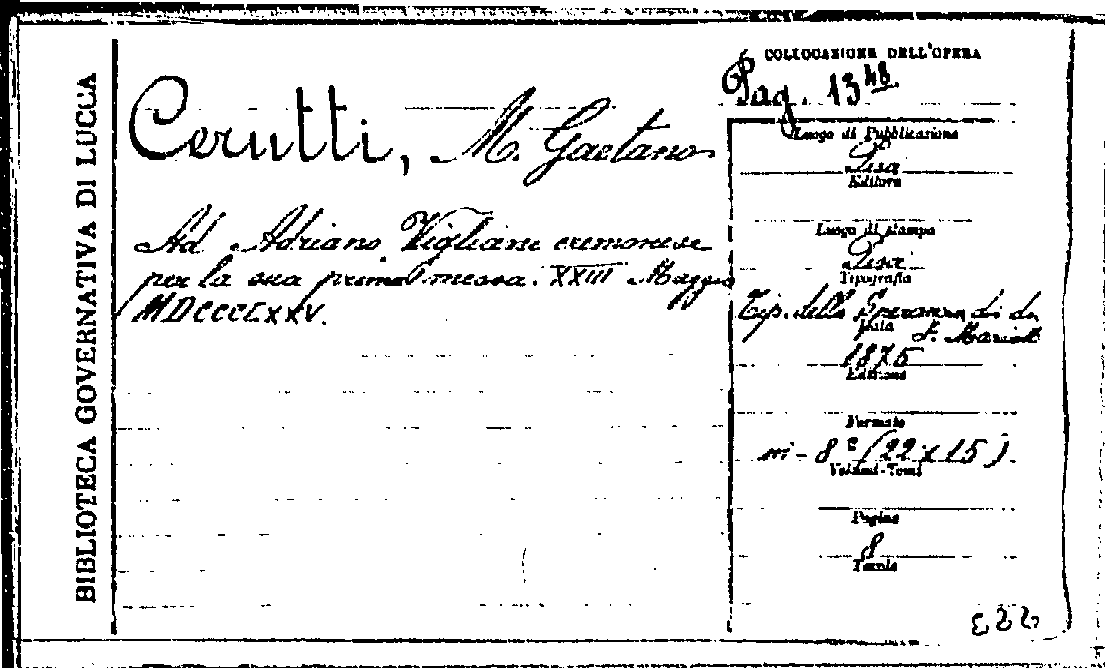 BIBLIOTECA GOVERNATIVA DI LUCCA
Cerutti, M. Gaetano
Ad Adriano Vigliani cremonese
per la sua prima messa. XXIII Maggio
MDCCCLXXV.
COLLOCAZIONE DELL'OPERA
Pag. 13 48
Luogo di Pubblicazione
Pisa
Editore
Luogo di stampa
Pisa
Tipografia
Tip. della Speranza di
F. Mariotti
Data
1875
Edizione
Formato
in-8° (22x15)
Volumi-Tomi
Pagine
8
Tavole